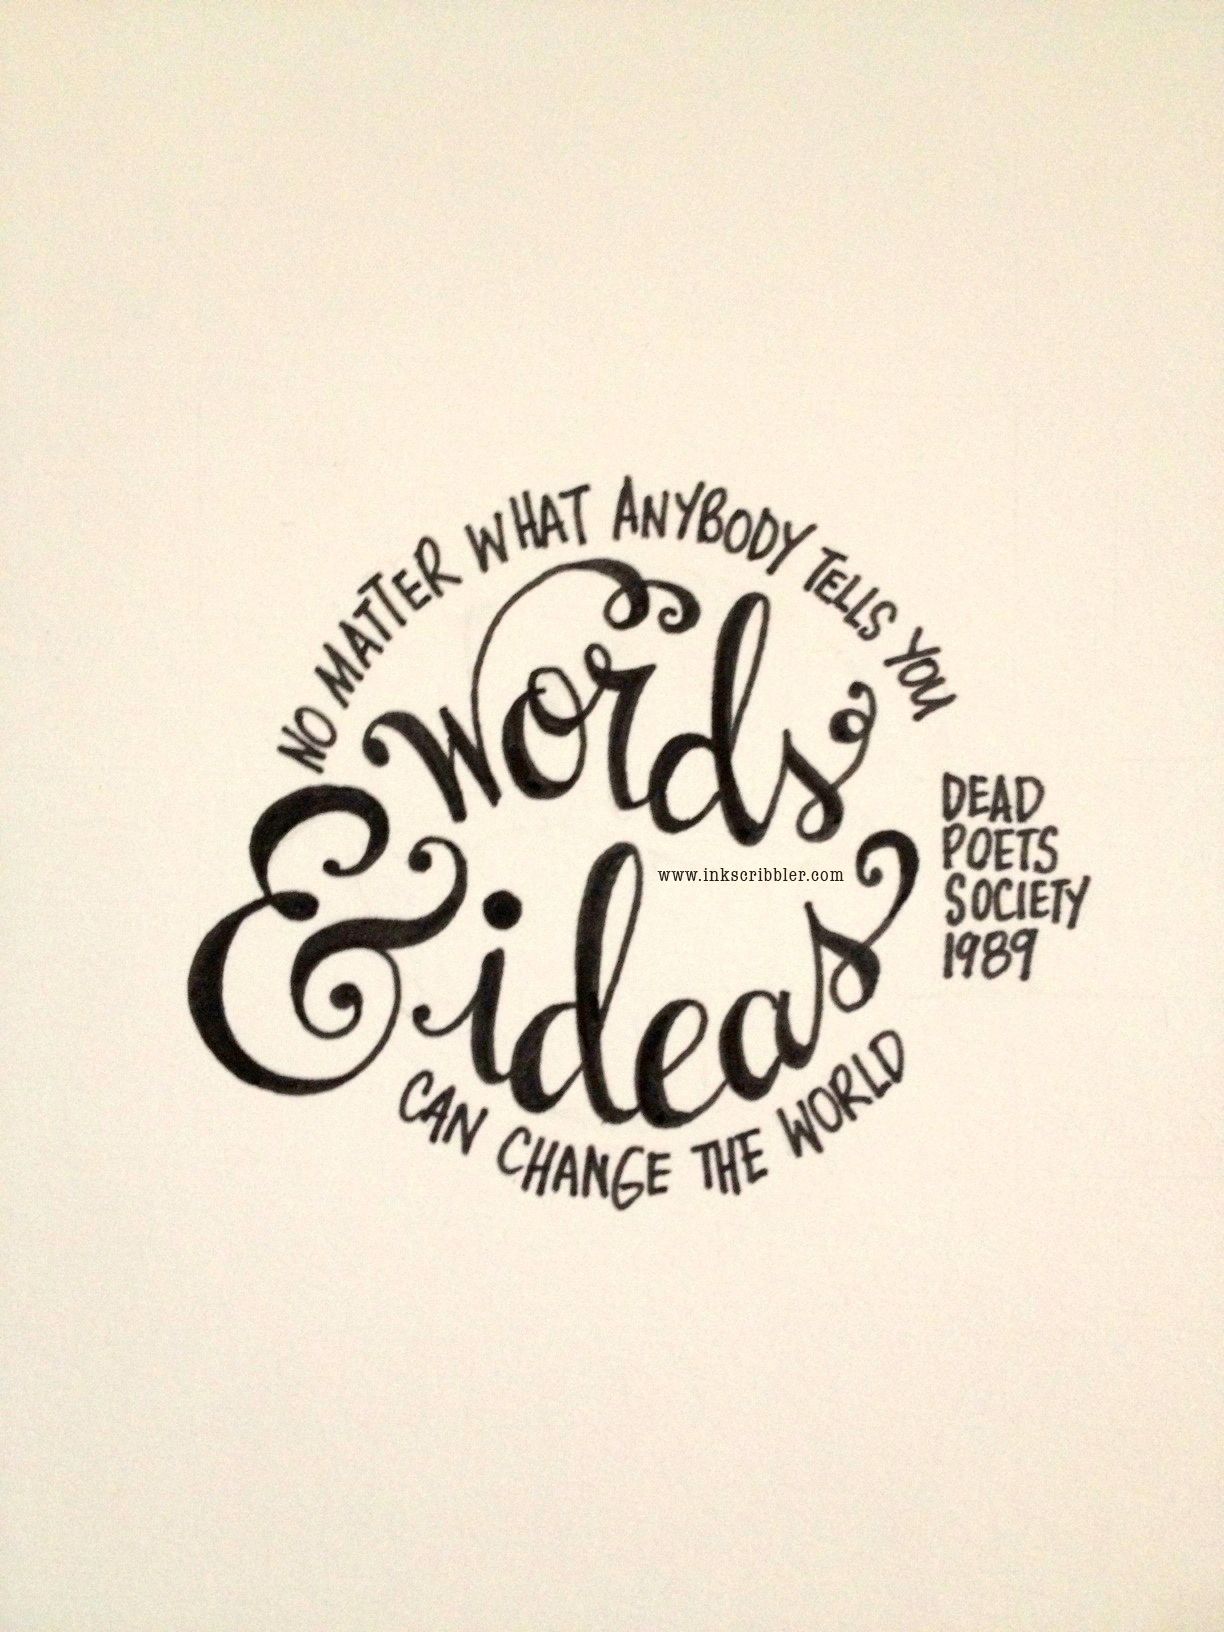 NO MATTER WHAT ANYBODY TELLS YOU
words
& ideas
www.inkscribbler.com
CAN CHANGE THE WORLD
DEAD
POETS
SOCIETY
1989